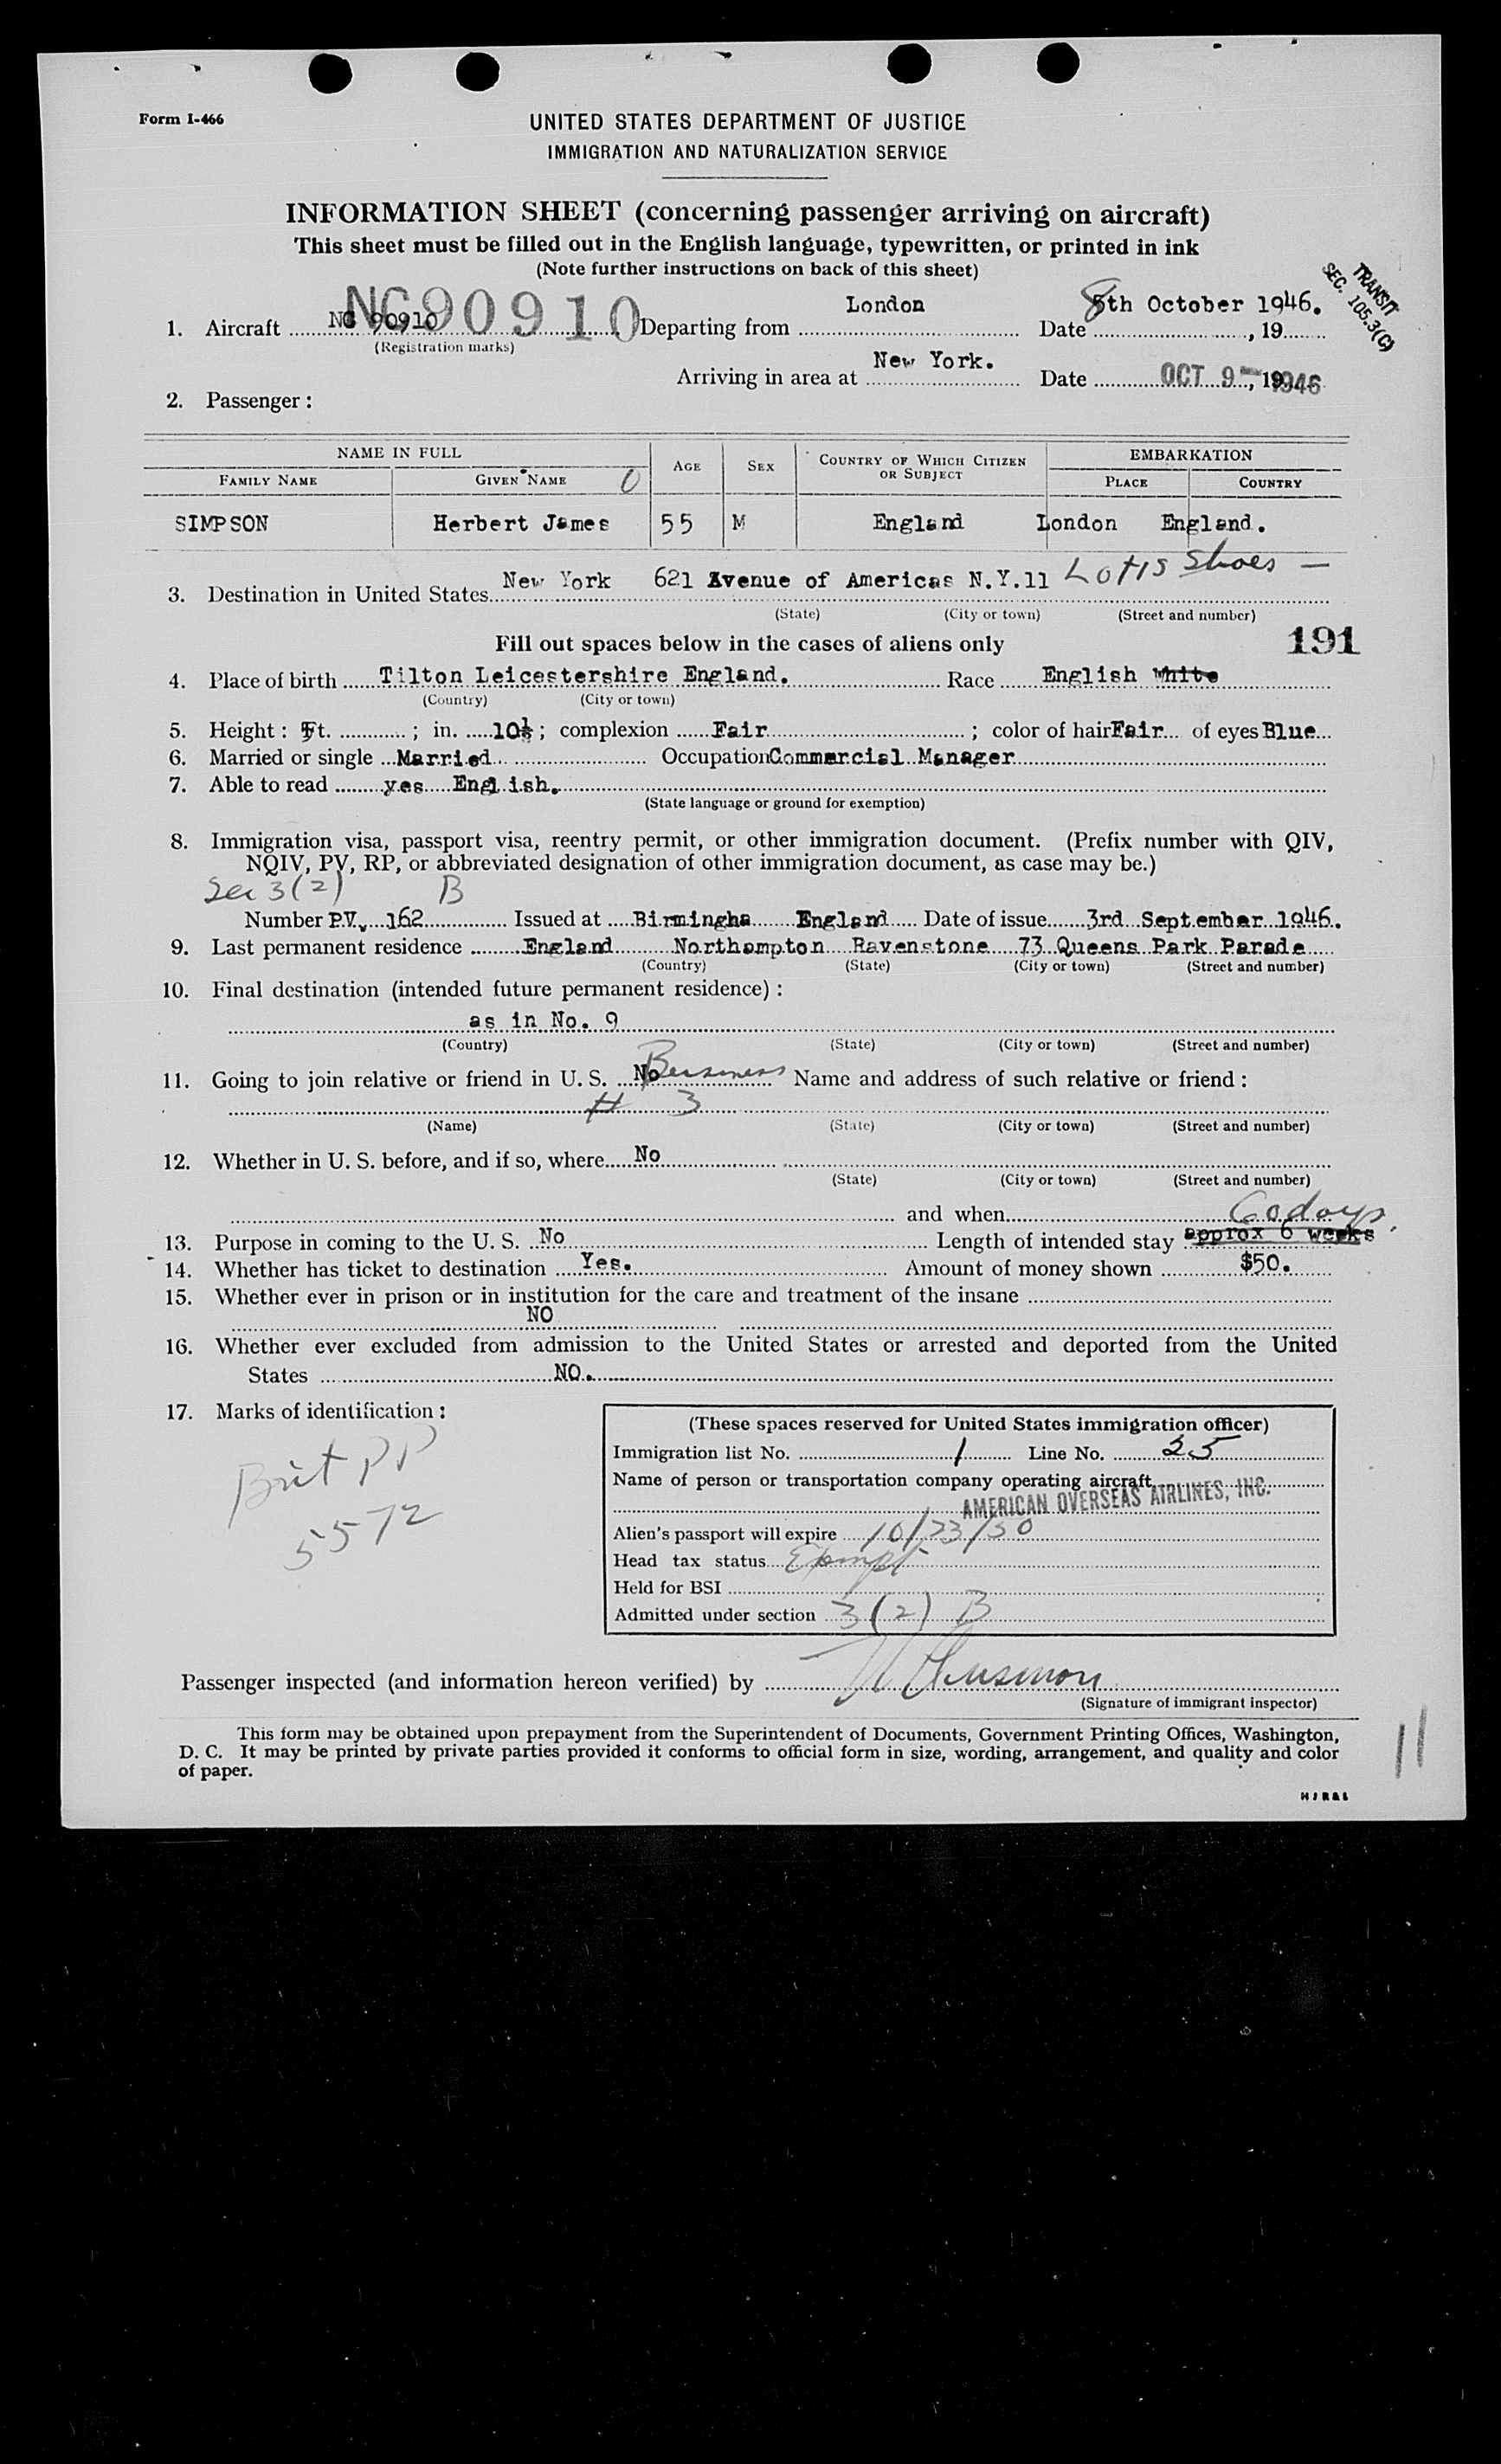 Form I-466
UNITED STATES DEPARTMENT OF JUSTICE
IMMIGRATION AND NATURALIZATION SERVICE
INFORMATION SHEET (concerning passenger arriving on aircraft)
This sheet must be filled out in the English language, typewritten, or printed in ink
(Note further instructions on back of this sheet)
TRANSIT
SEC. 105.3(C)
1. Aircraft NC 90910 NC90910 Departing from London Date 8th October 1946. , 19
(Registration marks)
Arriving in area at New York. Date OCT 9 - 1946
2. Passenger :
NAME IN FULL AGE SEX COUNTRY OF WHICH CITIZEN OR SUBJECT EMBARKATION
FAMILY NAME GIVEN NAME 0 PLACE COUNTRY
SIMPSON Herbert James 55 M England London England.
3. Destination in United States New York 621 Avenue of Americas N.Y.11 Lotis Shoes —
(State) (City or town) (Street and number)
Fill out spaces below in the cases of aliens only 191
4. Place of birth Tilton Leicestershire England. Race English White
(Country) (City or town)
5. Height : 5 ft. ; in. 10½ ; complexion Fair ; color of hair Fair of eyes Blue
6. Married or single Married Occupation Commercial Manager
7. Able to read yes English.
(State language or ground for exemption)
8. Immigration visa, passport visa, reentry permit, or other immigration document. (Prefix number with QIV,
NQIV, PV, RP, or abbreviated designation of other immigration document, as case may be.)
Sec 3(2) B
Number P.V. 162 Issued at Birmingha England Date of issue 3rd September 1946.
9. Last permanent residence England Northampton Ravenstone 73 Queens Park Parade
(Country) (State) (City or town) (Street and number)
10. Final destination (intended future permanent residence) :
as in No. 9
(Country) (State) (City or town) (Street and number)
11. Going to join relative or friend in U. S. No Business Name and address of such relative or friend :
3
(Name) (State) (City or town) (Street and number)
12. Whether in U. S. before, and if so, where No
(State) (City or town) (Street and number)
and when 60 days.
13. Purpose in coming to the U. S. No Length of intended stay approx 6 weeks
14. Whether has ticket to destination Yes. Amount of money shown $50.
15. Whether ever in prison or in institution for the care and treatment of the insane
NO
16. Whether ever excluded from admission to the United States or arrested and deported from the United
States NO.
17. Marks of identification :
Brit PP
5572
(These spaces reserved for United States immigration officer)
Immigration list No. 1 Line No. 25
Name of person or transportation company operating aircraft
AMERICAN OVERSEAS AIRLINES, INC.
Alien's passport will expire 10/23/50
Head tax status Exempt
Held for BSI
Admitted under section 3(2) B
Passenger inspected (and information hereon verified) by
(Signature of immigrant inspector)
This form may be obtained upon prepayment from the Superintendent of Documents, Government Printing Offices, Washington,
D. C. It may be printed by private parties provided it conforms to official form in size, wording, arrangement, and quality and color
of paper.
11
H J R & L